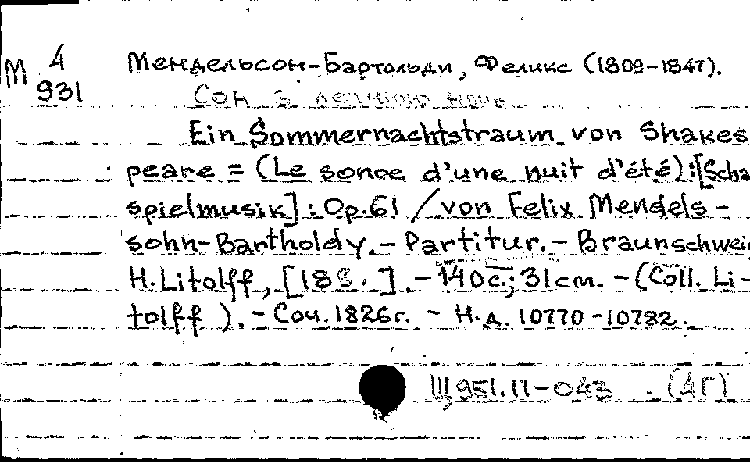 М 4/931
Мендельсон-Бартольди, Феликс (1809-1847).
Сон в летнюю ночь
Ein Sommernachtstraum von Shakes
peare = (Le songe d'une nuit d'été):[Scha
spielmusik]: Op.61 / von Felix Mendels-
sohn-Bartholdy.- Partitur.- Braunschwei
H.Litolff, [18 . ].- 140с.; 31cm. - (Coll. Li-
tolff ). - Соч. 1826г. - Н.д. 10770-10782.
Щ951.11-043 (АГ)